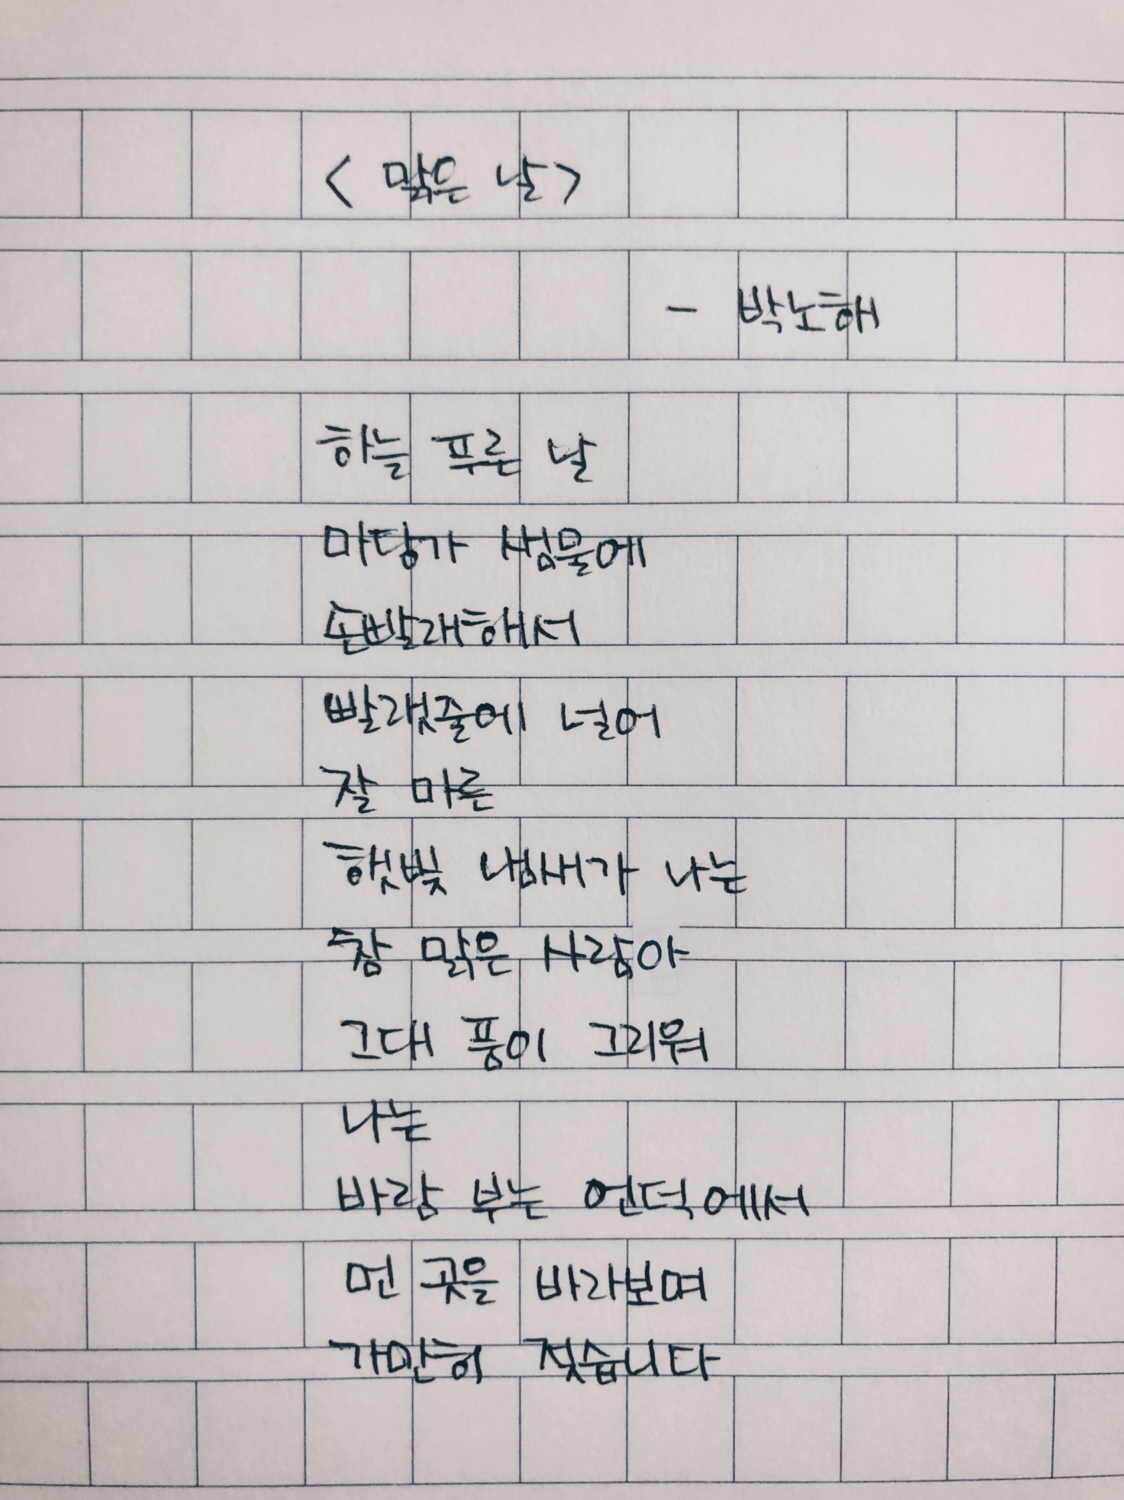 < 맑은 날>
- 박노해
하늘 푸른 날
마당가 샘물에
손빨래해서
빨랫줄에 널어
잘 마른
햇빛 냄새가 나는
참 맑은 사람아
그대 품이 그리워
나는
바람 부는 언덕에서
먼 곳을 바라보며
가만히 젖습니다